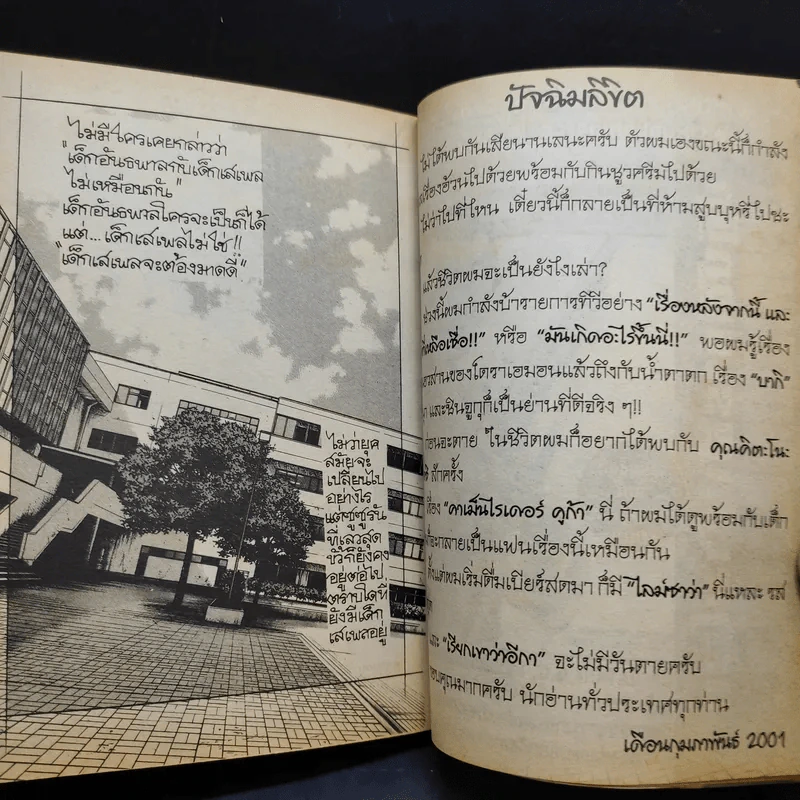 ไม่มีใครเคยกล่าวว่า
"เด็กอันธพาลกับเด็กเสเพล
ไม่เหมือนกัน"
เด็กอันธพาลใครจะเป็นก็ได้
แต่...เด็กเสเพลไม่ใช่!!
"เด็กเสเพลจะต้องมาดดี"
ไม่ว่ายุค
สมัยจะ
เปลี่ยนไป
อย่างไร
แต่ซูซูรัน
ที่เลวสุด
ขั้วก็ยังคง
อยู่ต่อไป
ตราบใดที่
ยังมีเด็ก
เสเพลอยู่
ปัจฉิมลิขิต
ไม่ได้พบกันเสียนานเลยนะครับ ตัวผมเองขณะนี้ก็กำลัง
เรื่องอ้วนไปด้วยพร้อมกับกินชูวครีมไปด้วย
ไม่ว่าไปที่ไหน เดี๋ยวนี้ก็กลายเป็นที่ห้ามสูบบุหรี่ไปซะ
แล้วชีวิตผมจะเป็นยังไงเล่า?
ช่วงนี้ผมกำลังบ้ารายการทีวีอย่าง "เรื่องหลังจากนี้ และ
เหลือเชื่อ!!" หรือ "มันเกิดอะไรขึ้นนี่!!" พอผมรู้เรื่อง
อวสานของโดราเอมอนแล้วถึงกับน้ำตาตก เรื่อง "บากิ"
และชินจูกุก็เป็นย่านที่ดีจริง ๆ!!
ก่อนจะตาย ในชีวิตผมก็อยากได้พบกับ คุณคิตะโนะ
สักครั้ง
เรื่อง "คาเม็นไรเดอร์ คูก้า" นี่ ถ้าผมได้ดูพร้อมกับเด็ก
ก็จะกลายเป็นแฟนเรื่องนี้เหมือนกัน
ตั้งแต่ผมเริ่มดื่มเบียร์สดมา ก็มี "ไลม์ซาว่า" นี่แหละ รส
และ "เรียกเขาว่าอีกา" จะไม่มีวันตายครับ
ขอบคุณมากครับ นักอ่านทั่วประเทศทุกท่าน
เดือนกุมภาพันธ์ 2001